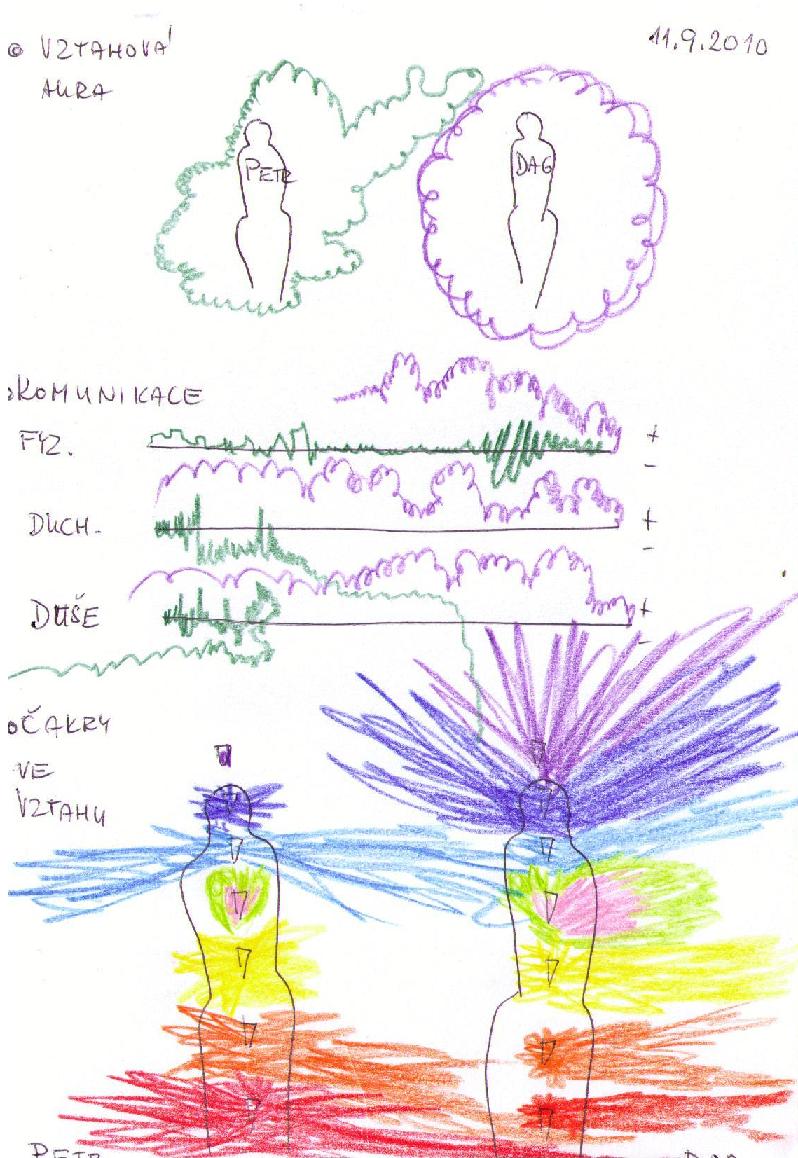 VZTAHOVÁ
AURA
11.9.2010
PETR
DAG
KOMUNIKACE
FYZ.
+
-
DUCH.
+
-
DUŠE
+
-
ČAKRY
VE
VZTAHU
PETR
DAG